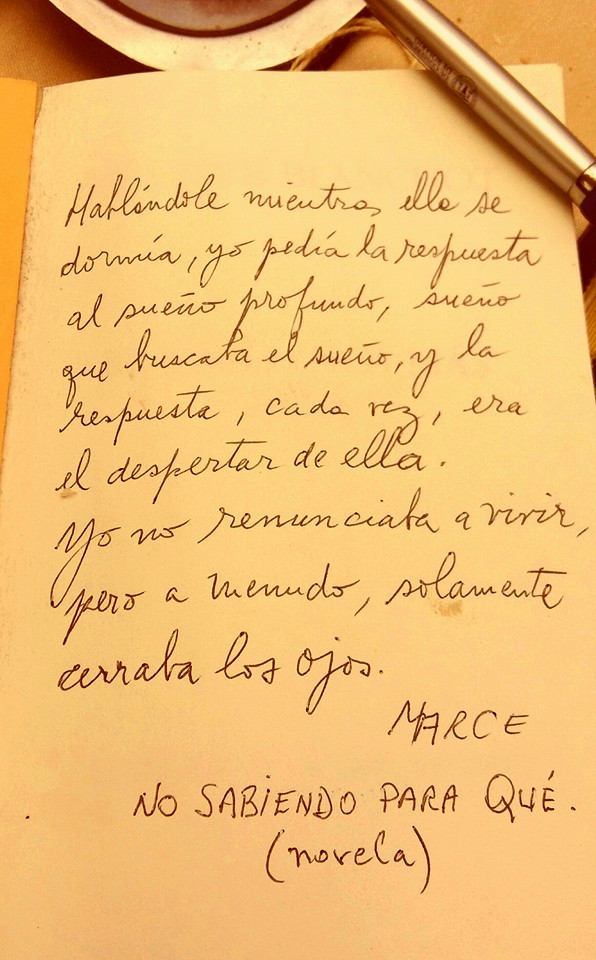 Hablándole mientras ella se
dormía, yo pedía la respuesta
al sueño profundo, sueño
que buscaba el sueño, y la
respuesta, cada vez, era
el despertar de ella.
Yo no renunciaba a vivir,
pero a menudo, solamente
cerraba los ojos.
MARCE
NO SABIENDO PARA QUÉ.
(novela)